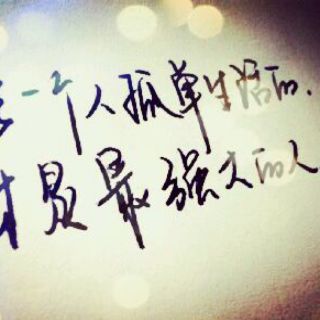 一个人孤单生活的.
才是最强大的人